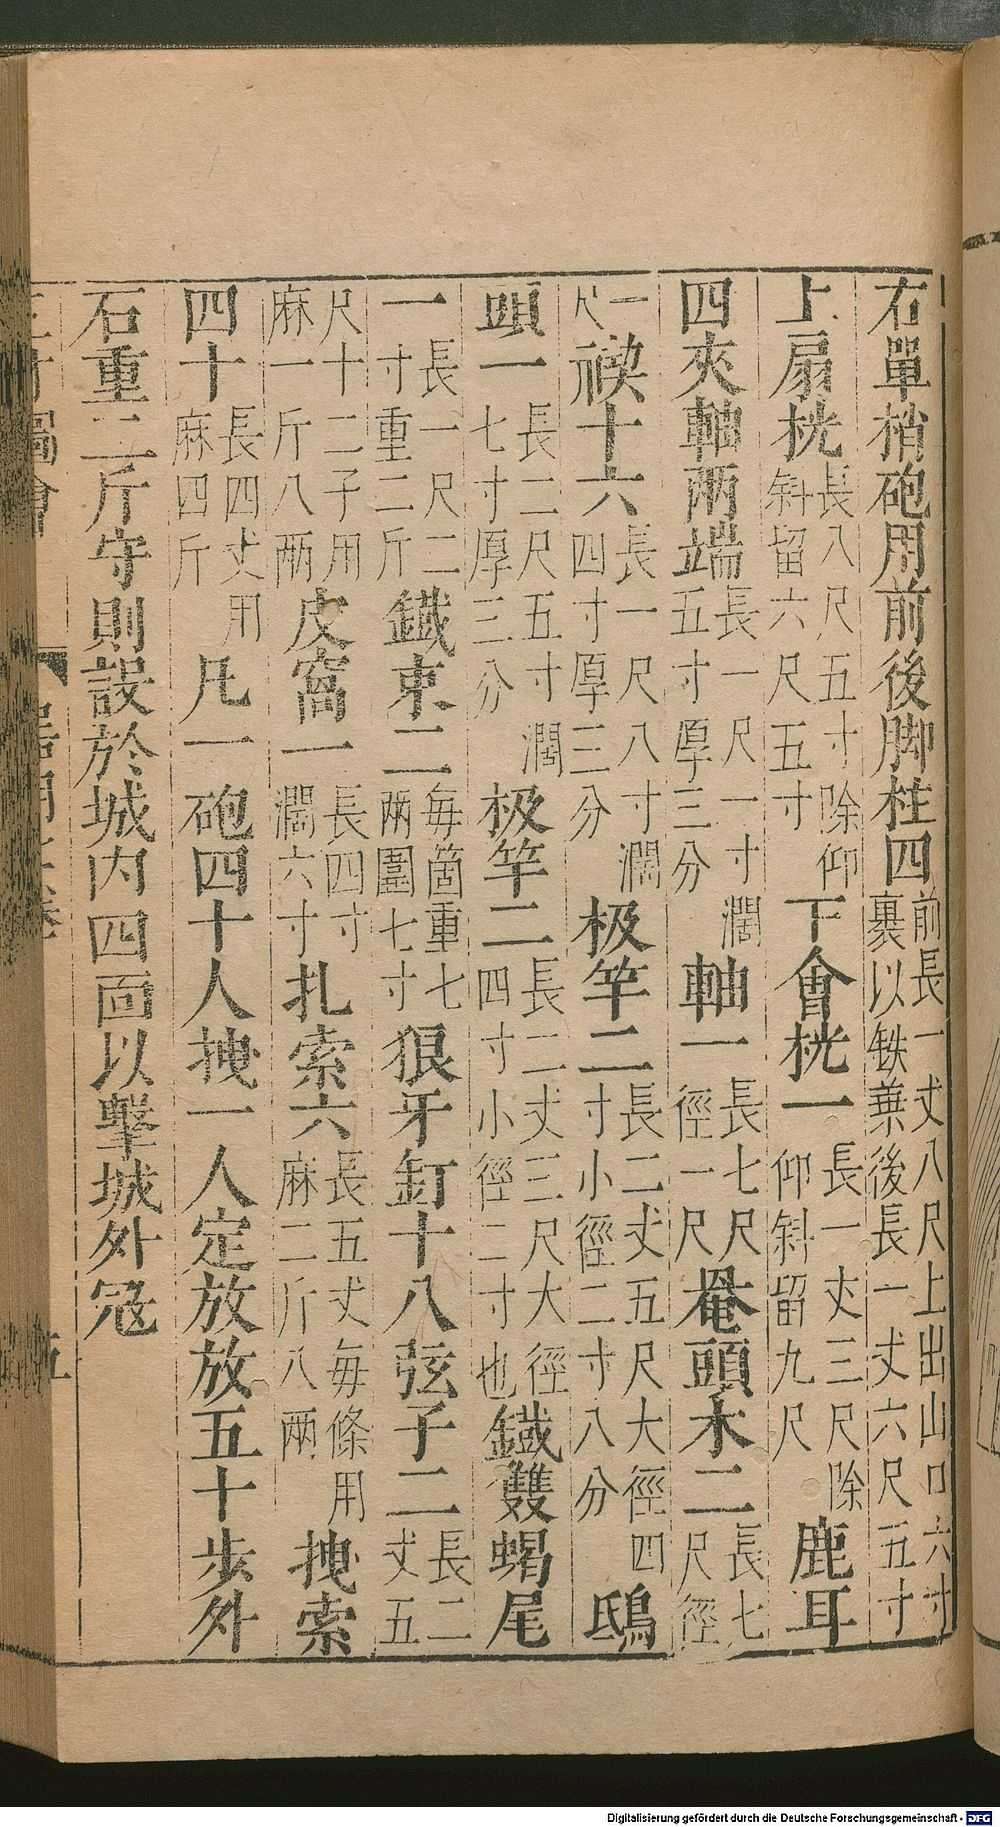 右單梢砲用前後脚柱四前長一丈八尺上出山口六寸裹以铁葉後長一丈六尺五寸
上扇桄長八尺五寸除仰斜留六尺五寸下會桄一長一丈三尺除仰斜留九尺鹿耳
四夾軸兩端長一尺一寸濶五寸厚三分軸一長七尺徑一尺罨頭木二長七尺徑
一尺楔十六長一尺八寸濶四寸厚三分极竿二長二丈五尺大徑四寸小徑二寸八分鴟
頭一長二尺五寸濶七寸厚三分极竿二長二丈三尺大徑四寸小徑二寸也鐵雙蝎尾
一長一尺二寸重二斤鐵束二每箇重七兩圍七寸狼牙釘十八弦子二長二丈五
尺十二子用麻一斤八兩皮窩一長四寸濶六寸扎索六長五丈每條用麻二斤八兩拽索
四十長四丈用麻四斤凡一砲四十人拽一人定放放五十步外
石重二斤守則設於城内四面以擊城外寇
圖會
五
Digitalisierung gefördert durch die Deutsche Forschungsgemeinschaft - DFG